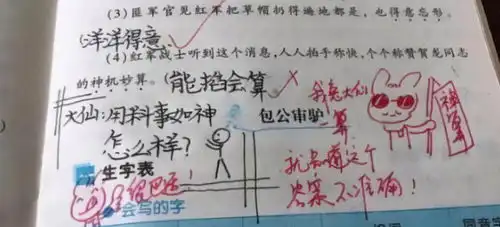 (3)匪军官见红军把草帽扔得遍地都是，也得意忘形。
(洋洋得意)
(4)红军战士听到这个消息，人人拍手称快，个个称赞贺龙同志
的神机妙算。(能掐会算)
大仙:用料事如神
怎么样?
包公审驴
我兔大仙
算
就知道这个
答案不准确!
神算
生字表
会写的字